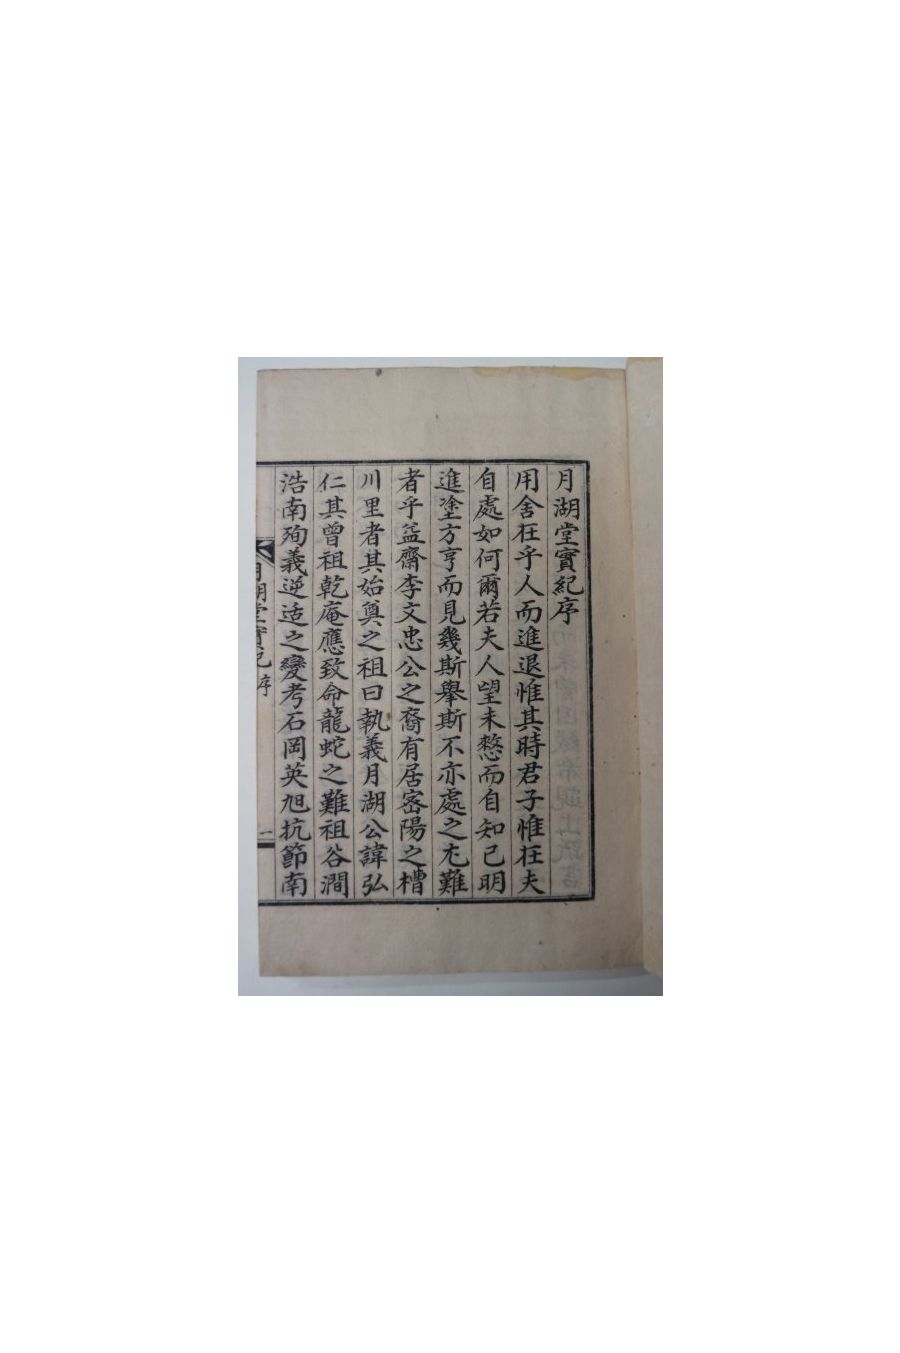 月湖堂實紀序
用舍在乎人而進退惟其時君子惟在夫
自處如何爾若夫人望未愸而自知已明
進塗方亨而見幾斯擧斯不亦處之尤難
者乎益齋李文忠公之裔有居密陽之槽
川里者其始奠之祖曰執義月湖公諱弘
仁其曾祖乾庵應致命龍蛇之難祖谷澗
浩南殉義逆适之變考石岡英旭抗節南
月湖堂實紀 序 一